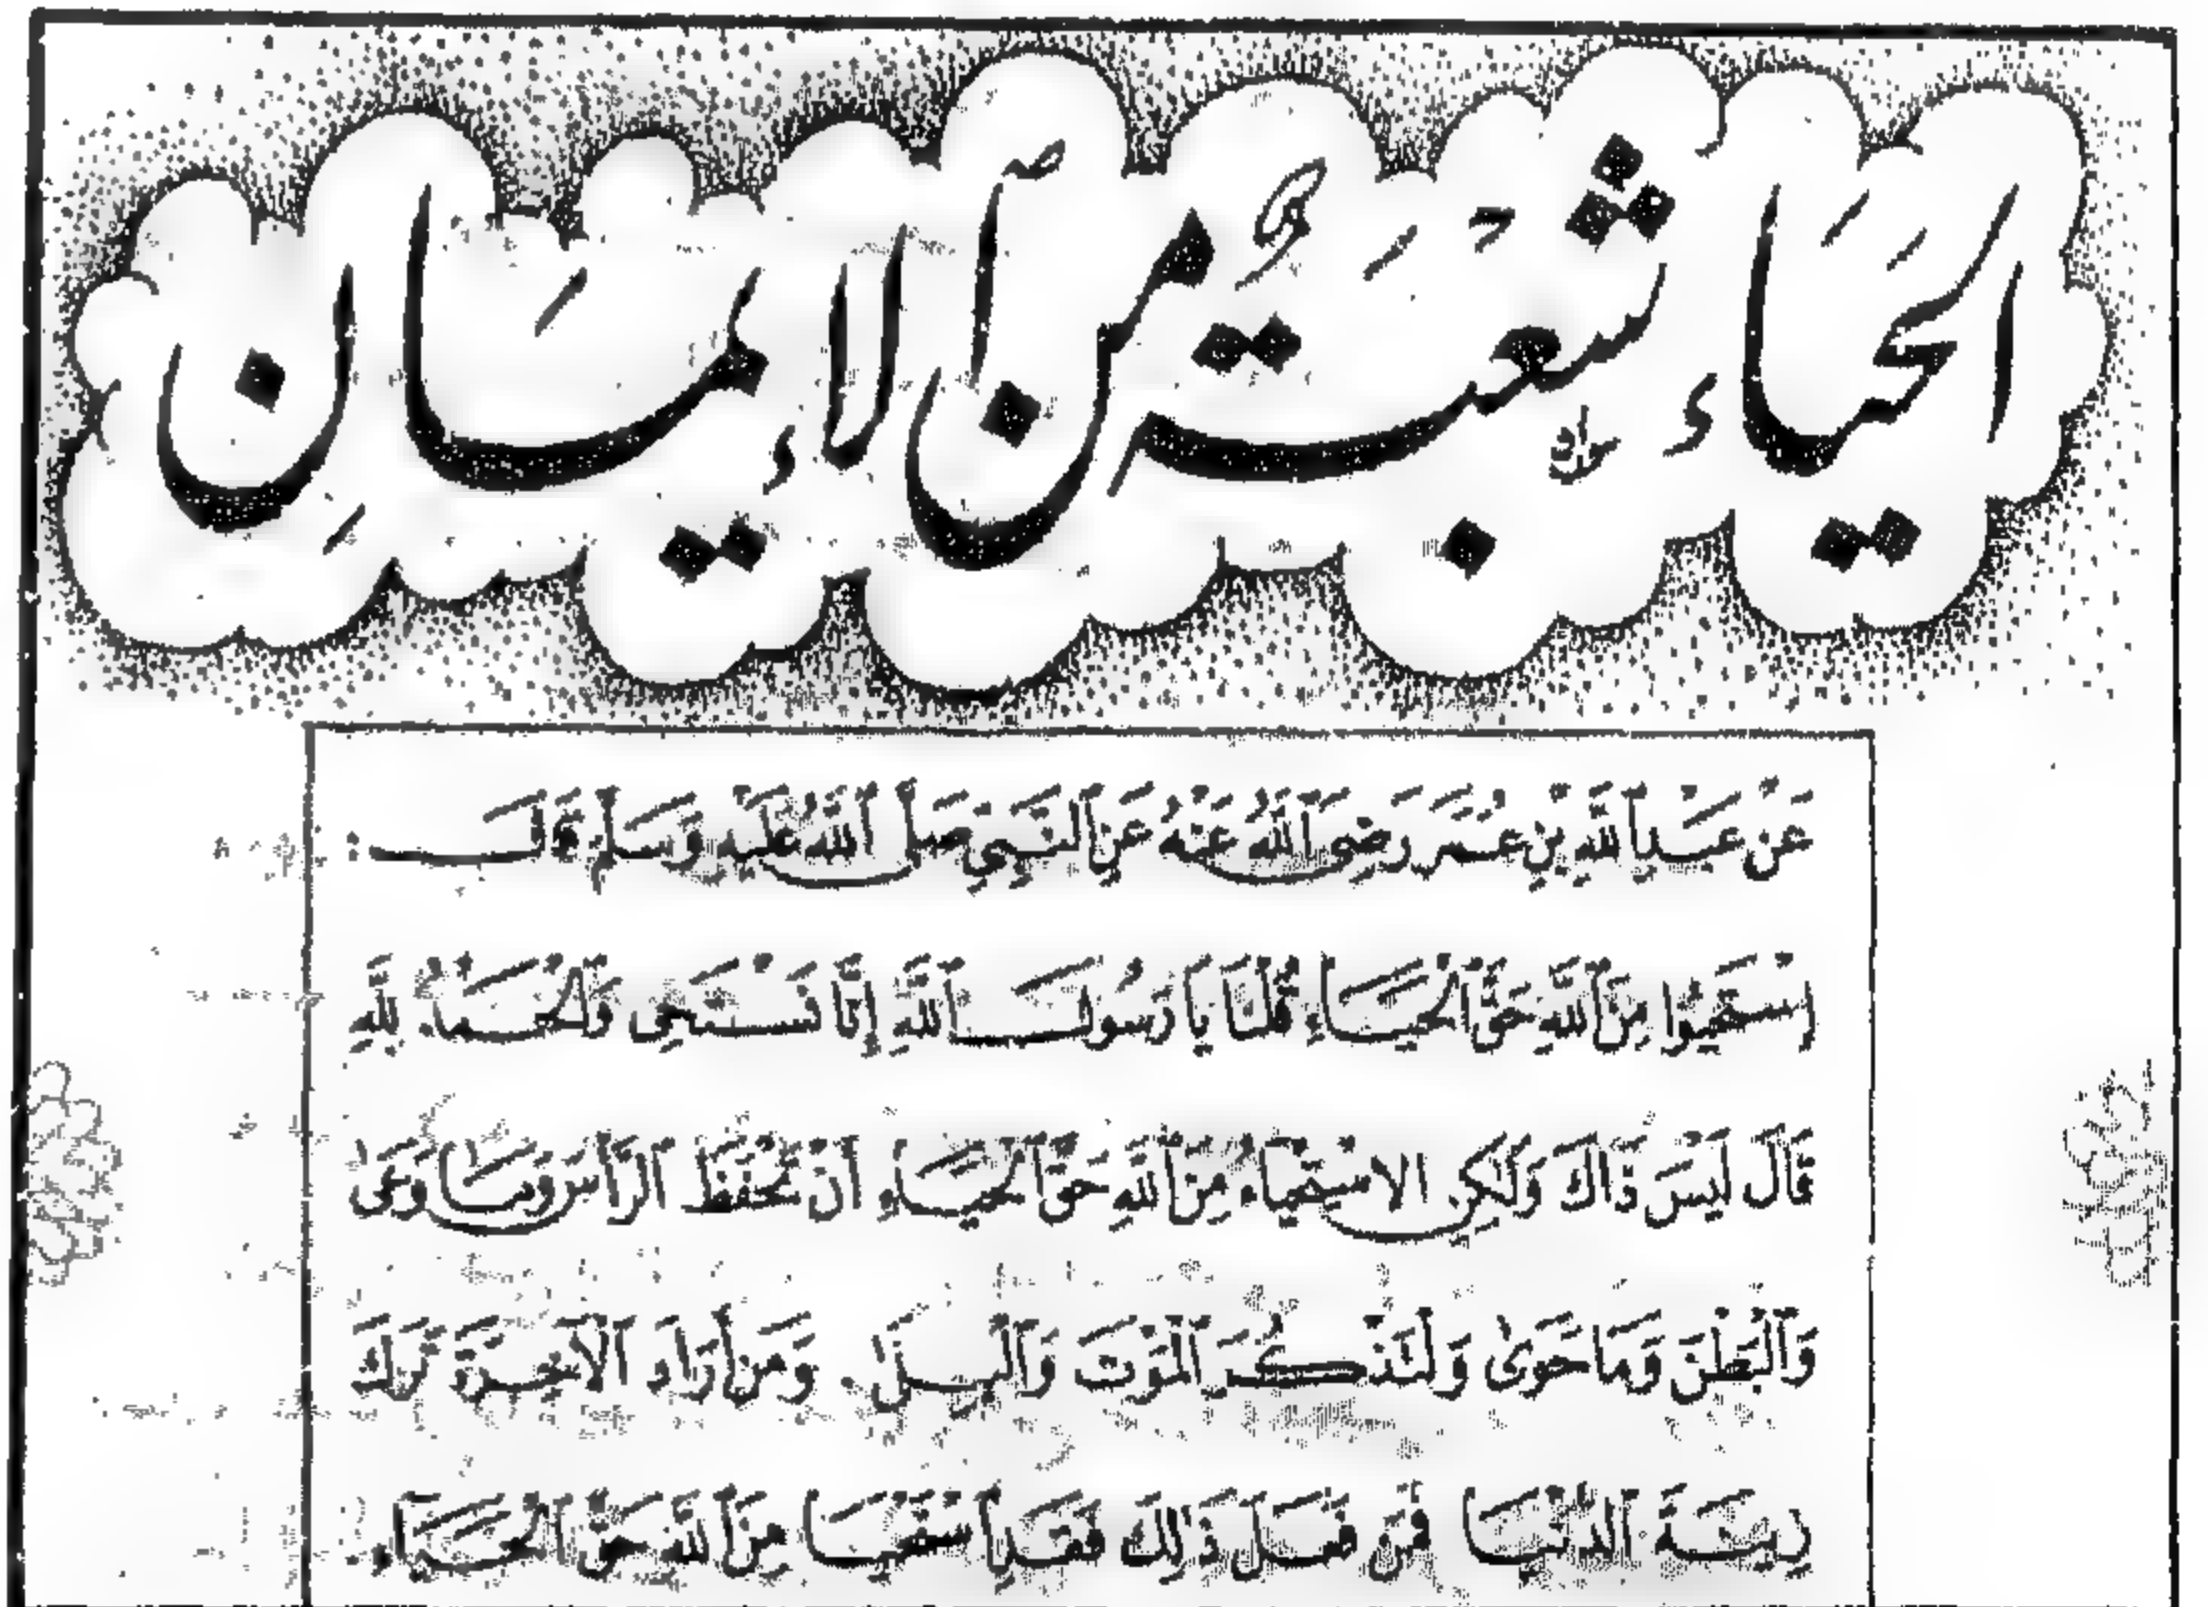 الحَيَاءُ شُعْبَةٌ مِنَ الْإِيمَانِ
عَنْ عَبْدِ اللَّهِ بْنِ عُمَرَ رَضِيَ اللَّهُ عَنْهُ عَنِ النَّبِيِّ صَلَّى اللَّهُ عَلَيْهِ وَسَلَّمَ قَالَ :
اِسْتَحْيُوا مِنَ اللَّهِ حَقَّ الْحَيَاءِ قُلْنَا يَا رَسُولَ اللَّهِ إِنَّا نَسْتَحْيِى وَالْحَمْدُ لِلَّهِ
قَالَ لَيْسَ ذَاكَ وَلَكِنِ الاسْتِحْيَاءُ مِنَ اللَّهِ حَقَّ الْحَيَاءِ أَنْ تَحْفَظَ الرَّأْسَ وَمَا وَعَى
وَالْبَطْنَ وَمَا حَوَى وَلْتَذْكُرَ الْمَوْتَ وَالْبِلَى . وَمَنْ أَرَادَ الْآخِرَةَ تَرَكَ
زِينَةَ الدُّنْيَا فَمَنْ فَعَلَ ذَلِكَ فَقَدِ اسْتَحْيَا مِنَ اللَّهِ حَقَّ الْحَيَاءِ .